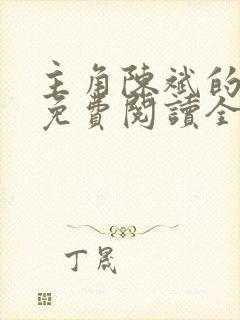 主角陳斌的
免費閱讀全
丁晟